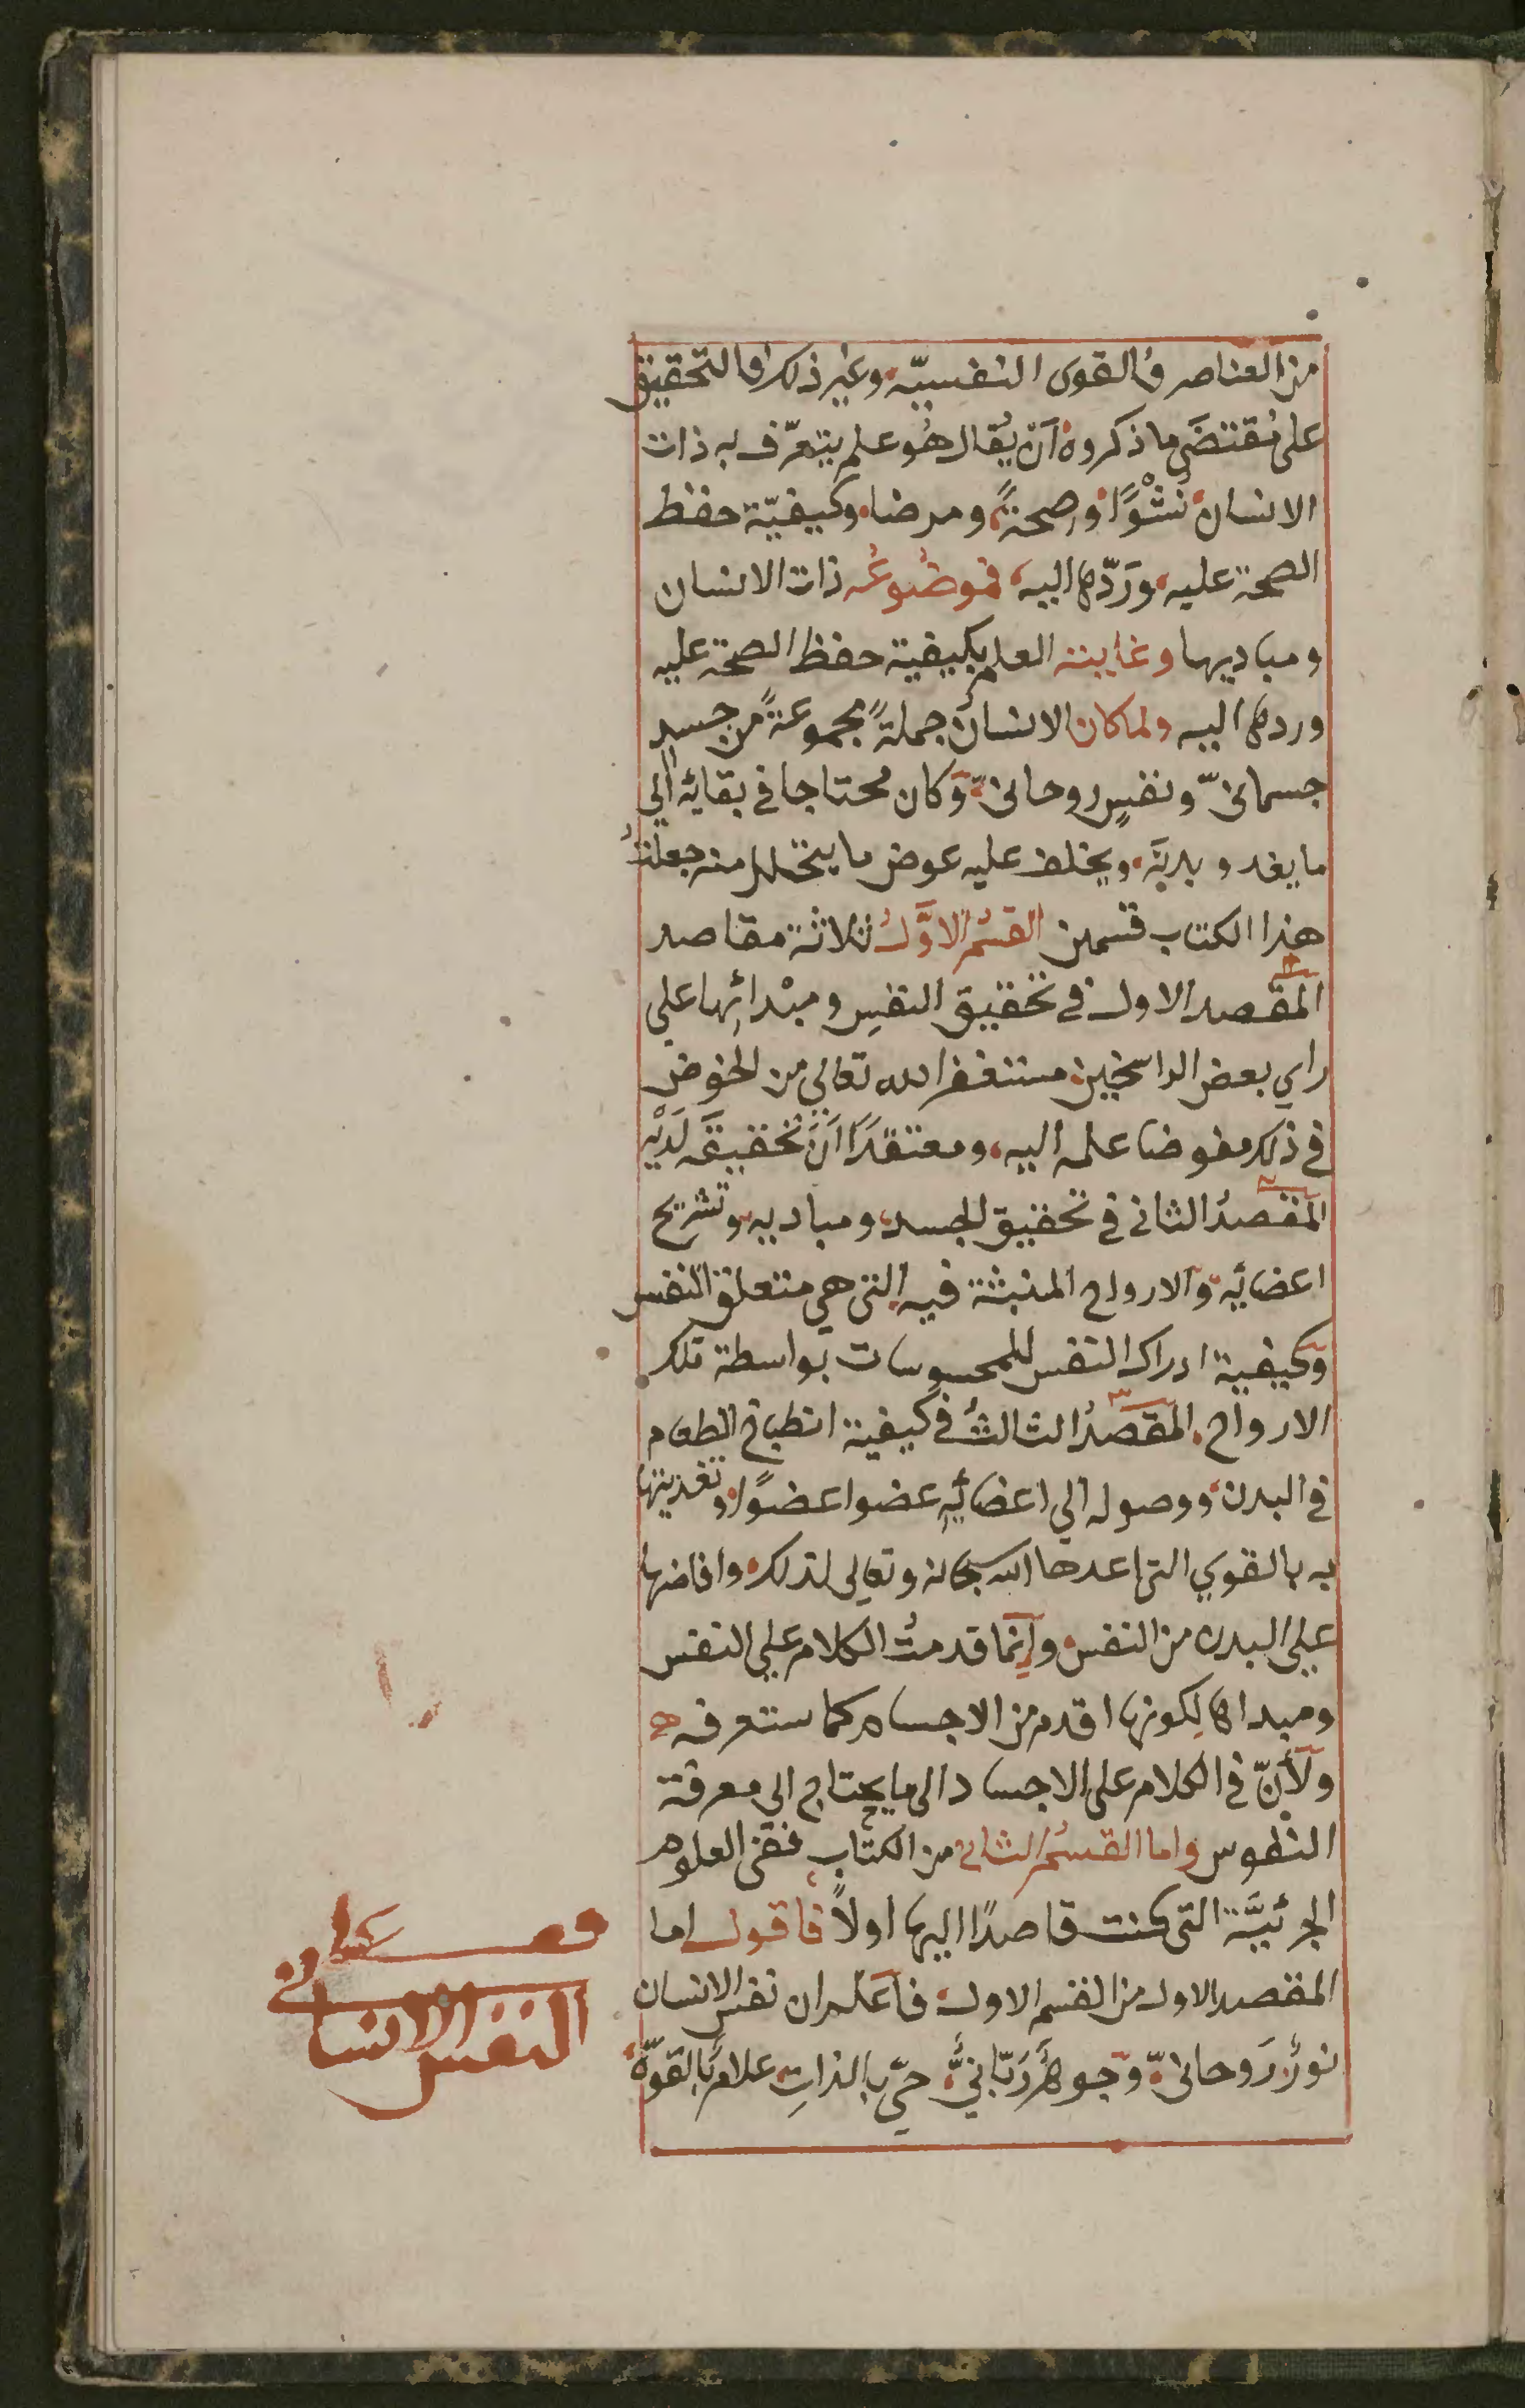 من العناصر والقوى النفسيّه وغير ذلك والتحقيق
على مُقتضَى ما ذكروه أن يُقال هُو علم يتعرّف به ذات
الانسان نُشْوًا وصحةً ومرضا وكيفيّة حفظ
الصحة عليه ورَدّها اليه فموضُوعُه ذات الانسان
ومباديها وغايته العلم بكيفية حفظ الصحة عليه
وردها اليه ولما كان الانسان جملةً مجموعةً من جسدٍ
جسمانىّ ونفسٍ روحانىّ وكان محتاجا في بقائه الي
ما يغدو بدنه ويخلف عليه عوض ما يتحلل منه جعلتُ
هذا الكتاب قسمين القسمُ الاوَّلُ ثلاثة مقاصد
المقصد الاول في تحقيق النفسِ ومبْدائِها على
راي بعض الراسخين مستغفرا لله تعالي من الخوض
في ذلك مفوضا علمه اليه ومعتقدًا انَّ تحقيقَه لَدَيْه
المقصدُ الثاني في تحقيق الجسد ومباديه وتشريح
اعضائه والارواح المنبثة فيه التى هي متعلق النفس
وكيفية ادراك النفس للمحسوسات بواسطة تلك
الارواح المقصدُ الثالثُ في كيفية انطباخ الطعام
في البدن ووصوله الي اعضائهِ عضوا عضوًا وتغذيتها
به بالقوي التى اعدها الله سبحانه وتعالى لذلك وافاضها
علي البدن من النفس وإنّما قدمتُ الكلام علي النفس
ومبداها لِكونها اقدم من الاجسام كما ستعرفه
ولأنّ في الكلام على الاجساد الى ما يحتاج الى معرفة
النفوس واما القسمُ الثانى من الكتاب ففى العلوم
الجزئيَّة التى كنت قاصدًا اليها اولاً فاقول اما
المقصد الاول من القسم الاول فاعلم ان نفس الانسان
نورٌ رَوحانىّ وجوهرٌ رَبّانيٌّ حيّ بالذاتِ علامٌ بالقوّة
فصل على
النفس الانسانى